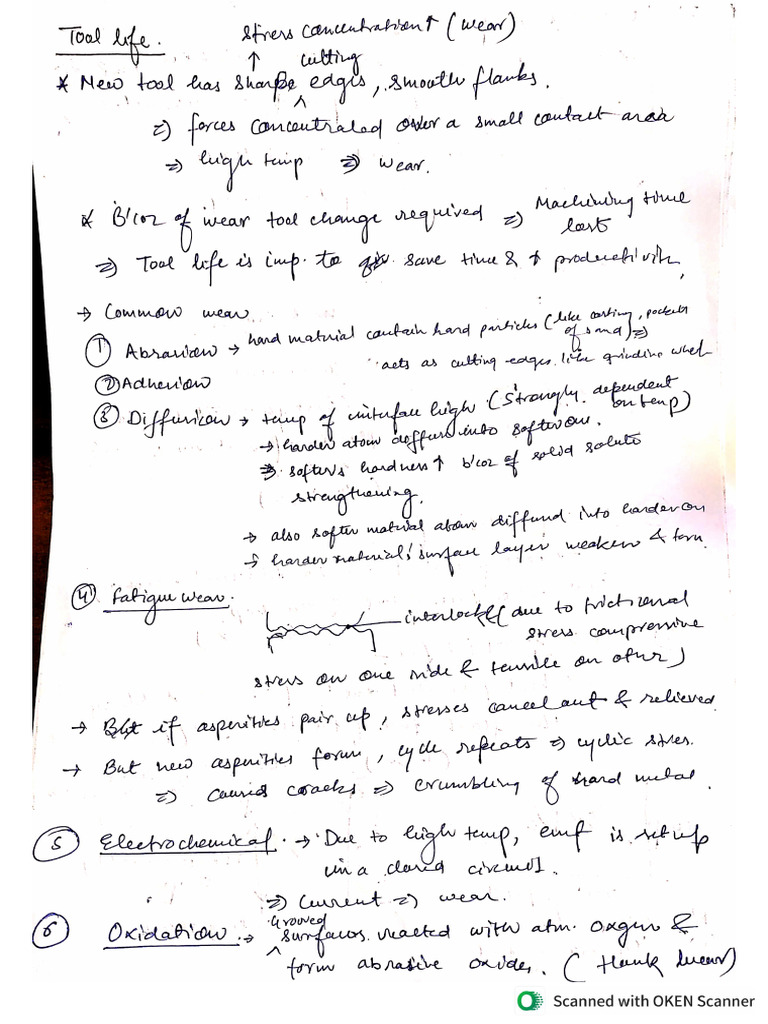 Tool life.
stress concentration↑ (wear)
↑ cutting
* New tool has sharpe edges, smooth flanks.
⇒ forces concentrated over a small contact area
⇒ high temp ⇒ wear.
* B'coz of wear tool change required ⇒ Machining time
lost
⇒ Tool life is imp. to save time & ↑ productivity
→ Common wear
① Abrasion → hard material contain hard particles (like casting, pockets
of sand) ⇒
acts as cutting edges like grinding wheel
② Adhesion
③ Diffusion → temp of interface high (strongly dependent
on temp)
→ harder atom diffuse into softer one.
⇒ softer's hardness ↑ b'coz of solid solute
strengthening.
→ also softer material atom diffund into harder on
→ harder material's surface layer weaken & torn
④ Fatigue wear.
interlock (due to frictional
stress compressive
stress on one side & tensile on other)
→ But if asperities pair up, stresses cancel out & relieved.
→ But new asperities form, cycle repeats ⇒ cyclic stres.
⇒ causes cracks ⇒ crumbling of hard metal.
⑤ Electrochemical. → Due to high temp, emf is set up
in a closed circuit.
⇒ Current ⇒ wear.
Grooved
⑥ Oxidation. → surfaces reacted with atm. oxgen &
form abrasive oxides. (flank wear)
Scanned with OKEN Scanner